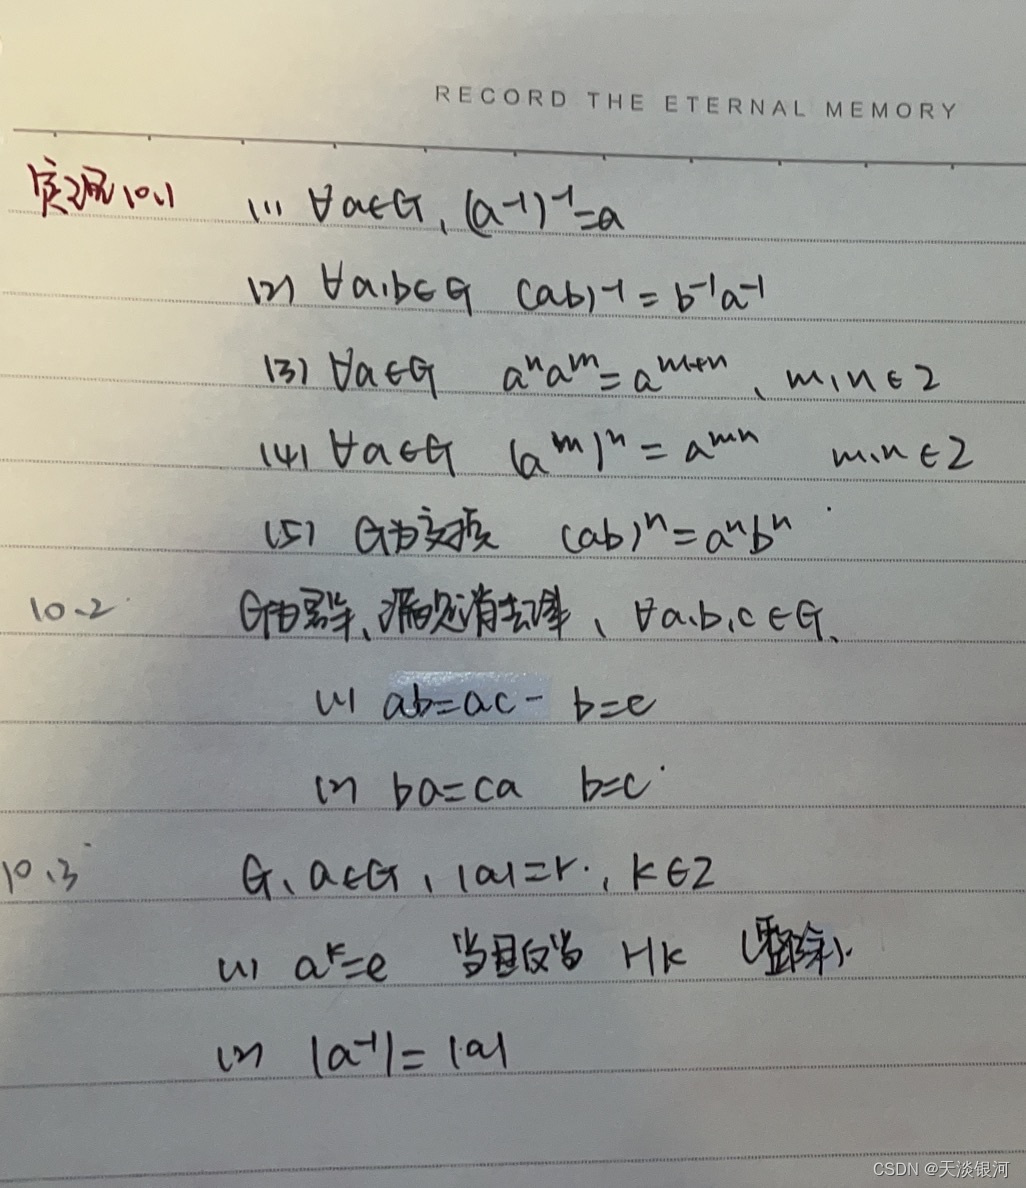 RECORD THE ETERNAL MEMORY
定理10.1 (1) ∀a∈G, (a⁻¹)⁻¹=a
(2) ∀a,b∈G (ab)⁻¹=b⁻¹a⁻¹
(3) ∀a∈G aⁿaᵐ=aᵐ⁺ⁿ、m,n∈Z
(4) ∀a∈G (aᵐ)ⁿ=aᵐⁿ m,n∈Z
(5) G为交换 (ab)ⁿ=aⁿbⁿ
10.2 G为群、满足消去律、∀a,b,c∈G、
(1) ab=ac- b=c
(2) ba=ca b=c
10.3 G、a∈G, |a|=r., k∈Z
(1) aᵏ=e 当且仅当 r|k (整除).
(2) |a⁻¹|=|a|
CSDN @天淡银河